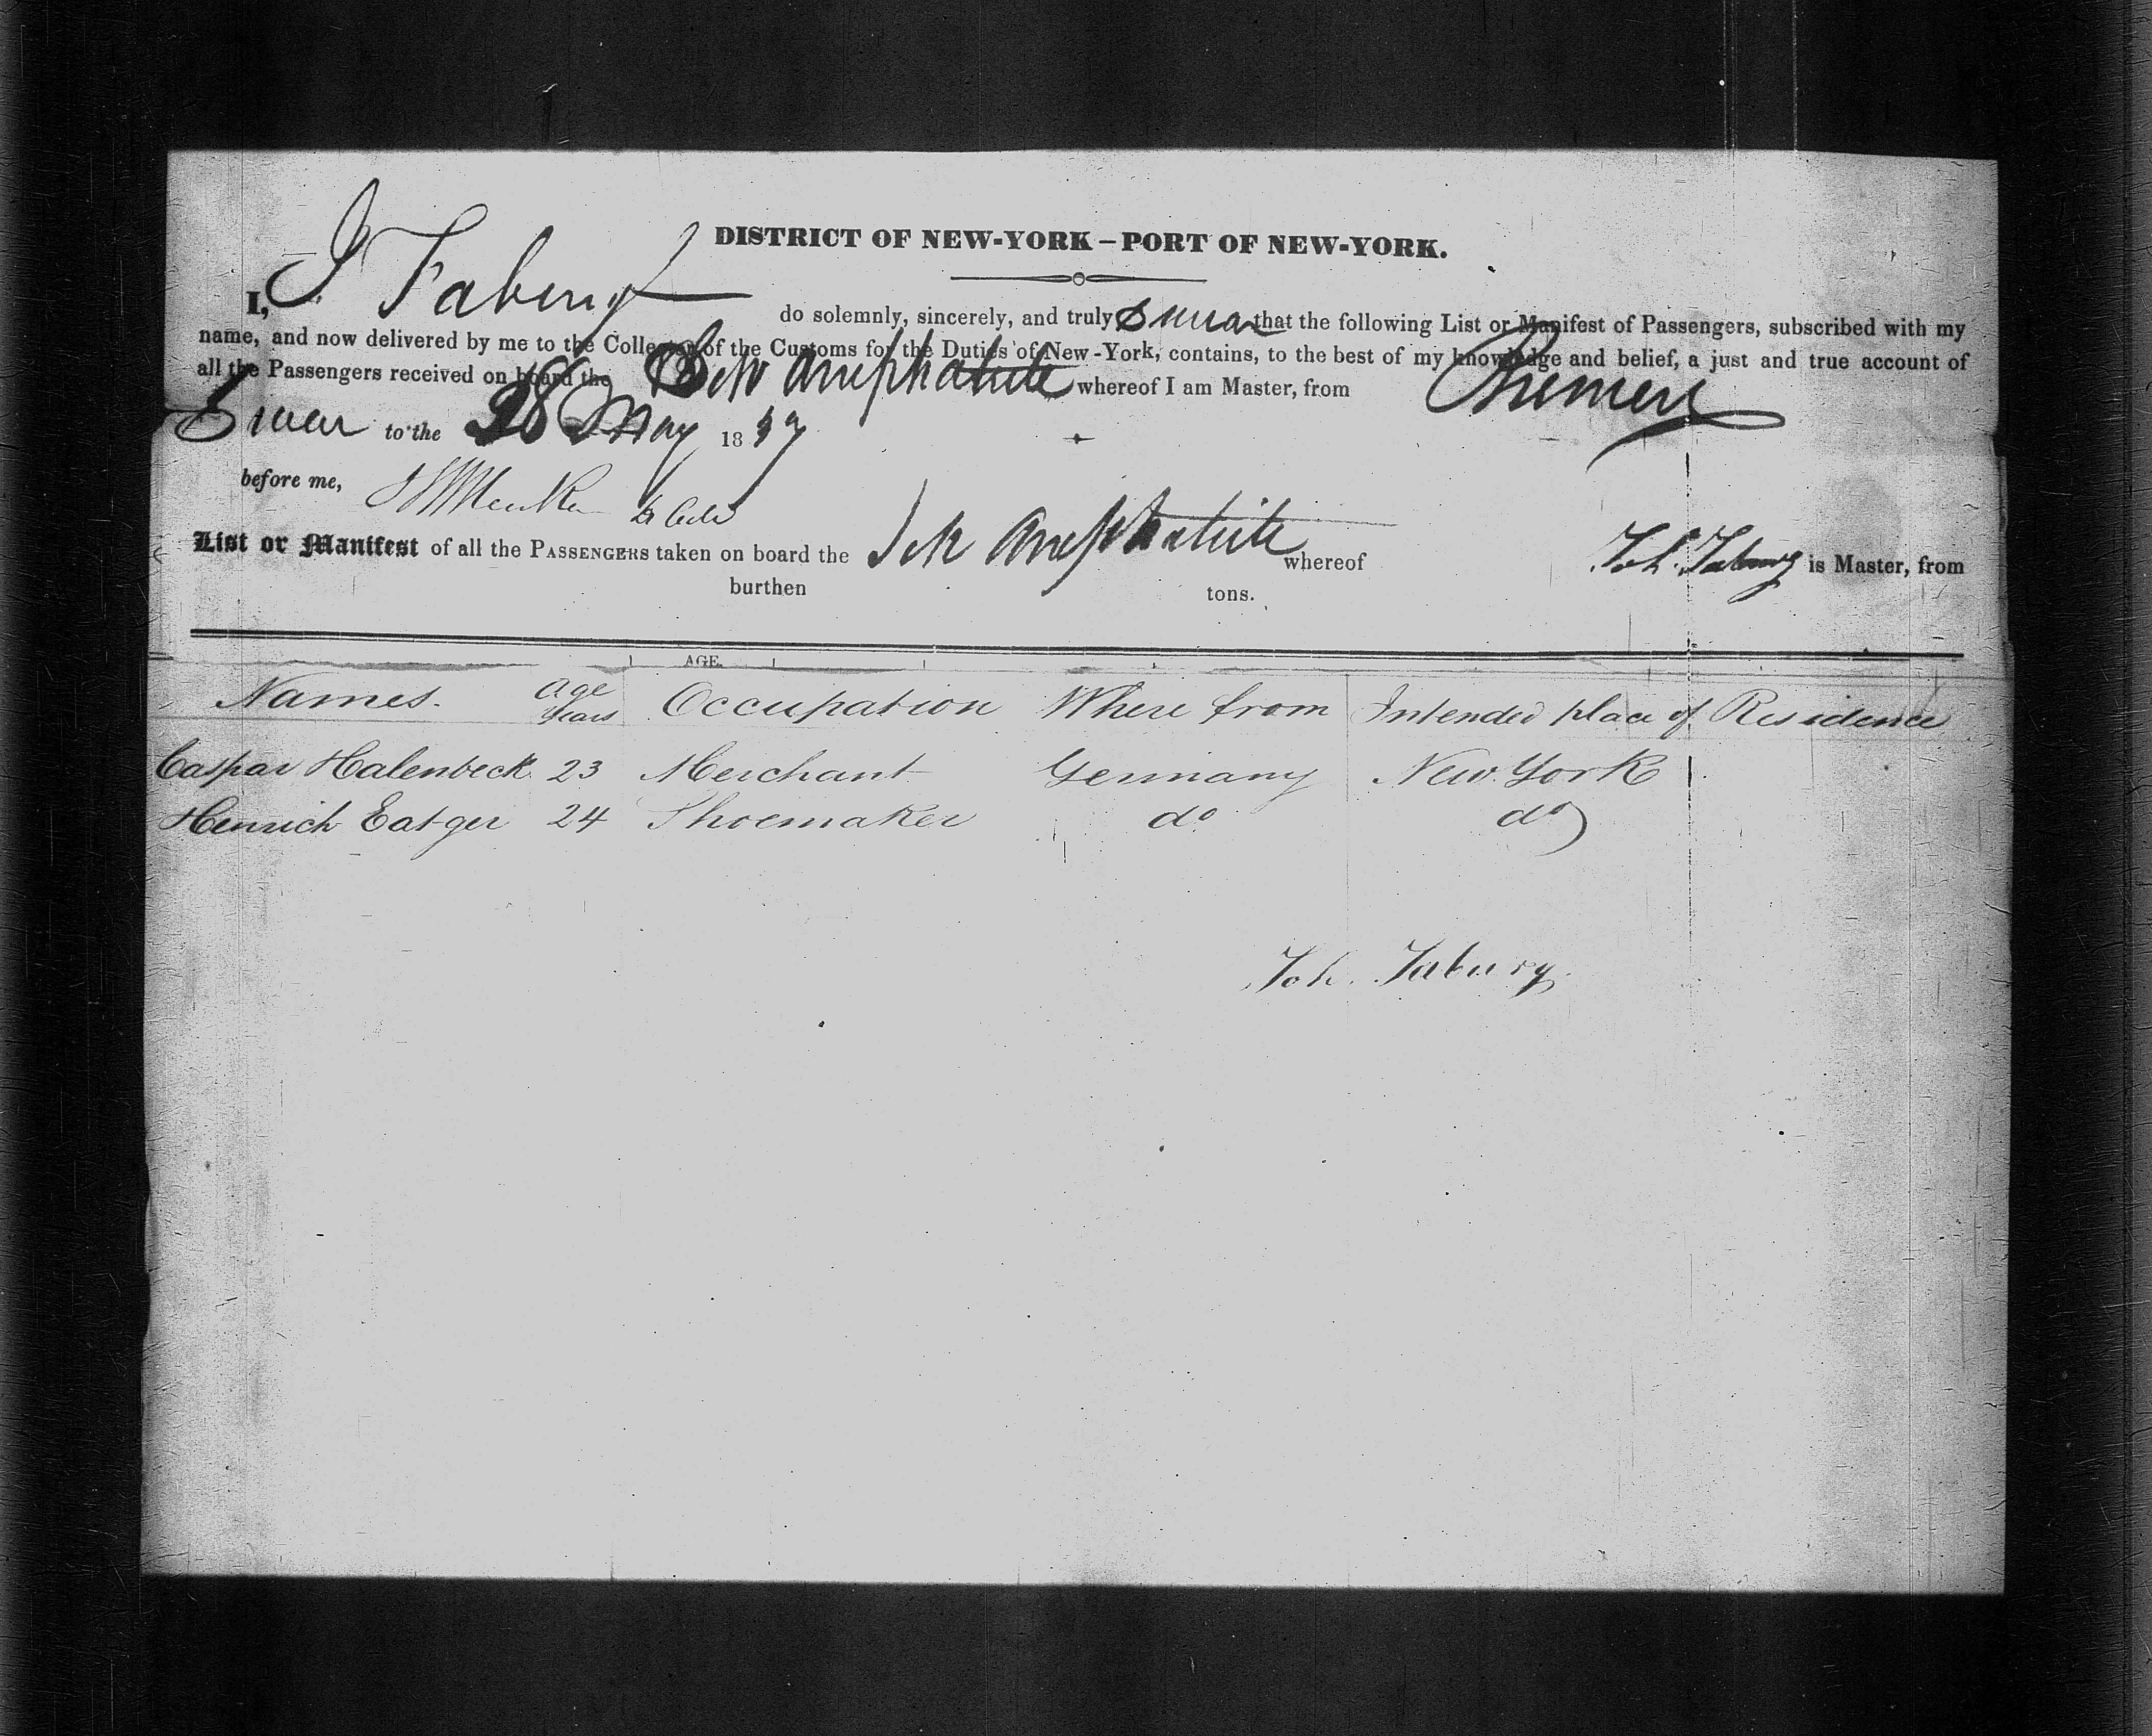 DISTRICT OF NEW-YORK – PORT OF NEW-YORK.
I, J Faburg do solemnly, sincerely, and truly swear that the following List or Manifest of Passengers, subscribed with my
name, and now delivered by me to the Collector of the Customs for the Duties of New-York, contains, to the best of my knowledge and belief, a just and true account of
all the Passengers received on board the Sch Amphitrite whereof I am Master, from Bremen
Swear to the 28 May 1837
before me,
List or Manifest of all the PASSENGERS taken on board the Sch Amphitrite whereof Joh. Faburg is Master, from
burthen tons.
AGE.
Names. Age Years Occupation Where from Intended place of Residence
Caspar Halenbeck 23 Merchant Germany New York
Henrich Eatger 24 Shoemaker do do
Joh. Faburg.